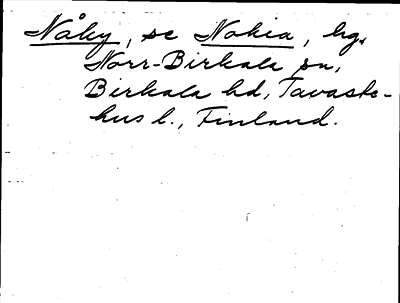 Nåky, se Nokia, hg,
Norr-Birkala sn,
Birkala hd, Tavaste-
hus l., Finland.